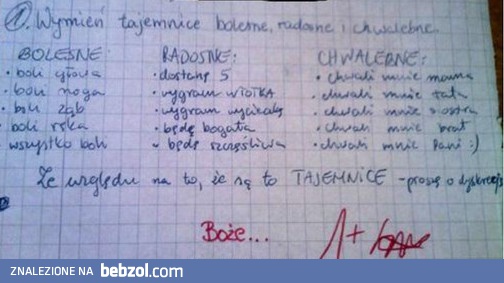 ① Wymień tajemnice bolesne, radosne i chwalebne.
BOLESNE: RADOSNE: CHWALEBNE:
• boli głowa • dostanę 5 • chwali mnie mama
• boli noga • wygram w TOTKA • chwali mnie tata
• boli ząb • wygram wycieczkę • chwali mnie siostra
• boli ręka • będę bogata • chwali mnie brat
wszystko boli • będę szczęśliwa • chwali mnie Pani :)
Ze względu na to, że są to TAJEMNICE - proszę o dyskrecję
Boże... 1+
ZNALEZIONE NA bebzol.com